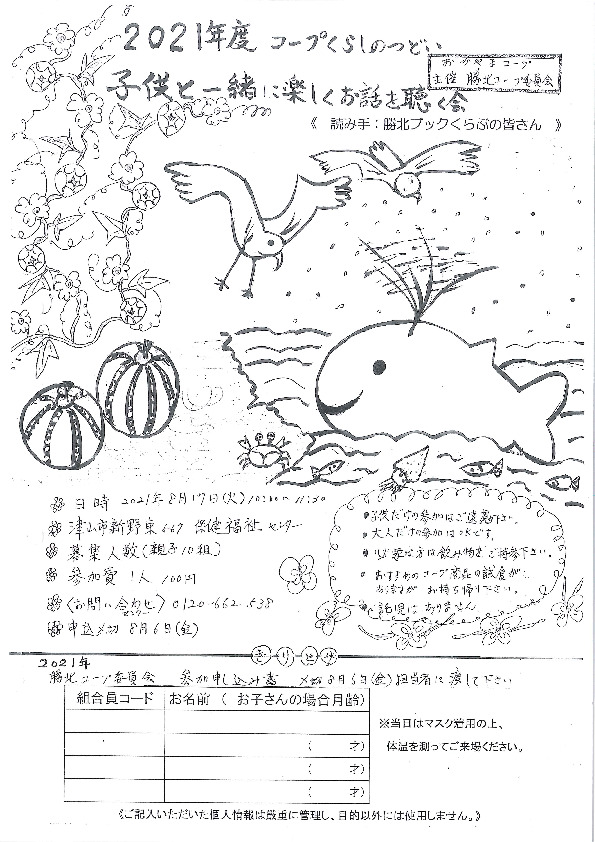 2021年度 コープくらしのつどい
おかやまコープ
主催 勝北コープ委員会
子供と一緒に楽しくお話を聴く会
《 読み手：勝北ブックくらぶの皆さん 》
日時 2021年8月17日(火) 10:00〜11:30
津山市新野東667 保健福祉センター
募集人数(親子10組)
参加費 1人 100円
〈お問い合わせ〉0120-662-538
センター
申込〆切 8月6日(金)
●子供だけの参加はご遠慮下さい。
●大人だけの参加はOKです。
●必要な方は飲み物をご持参下さい。
●おすすめのコープ商品の試食が
ありますが お持ち帰りください。
●託児はありません
きりとり
2021年
勝北コープ委員会 参加申し込み書 〆切8月6日(金)担当者に渡して下さい
組合員コード お名前 （ お子さんの場合月齢）
（ 才）
（ 才）
（ 才）
※当日はマスク着用の上、
体温を測ってご来場ください。
《ご記入いただいた個人情報は厳重に管理し、目的以外には使用しません。》